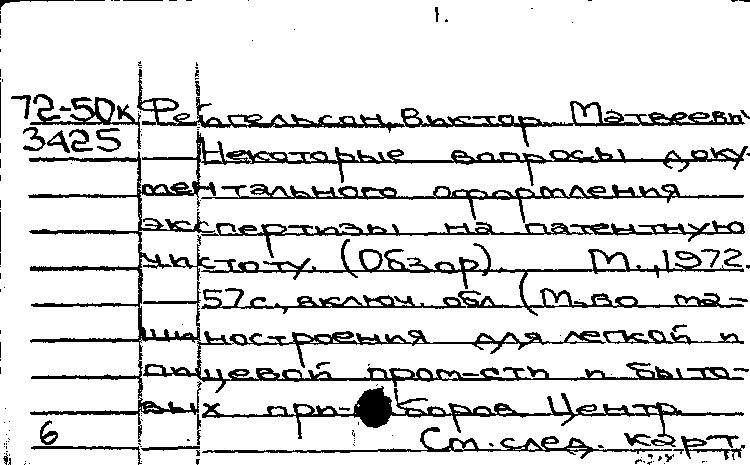 1.
72-50к Фейгельсон, Виктор Матвеевич
3425 Некоторые вопросы доку-
ментального оформления
экспертизы на патентную
чистоту. (Обзор). М., 1972.
57 с., включ. обл (М-во ма-
шиностроения для легкой и
пищевой пром-сти и быто-
вых при-боров Центр
6 См. след. карт.